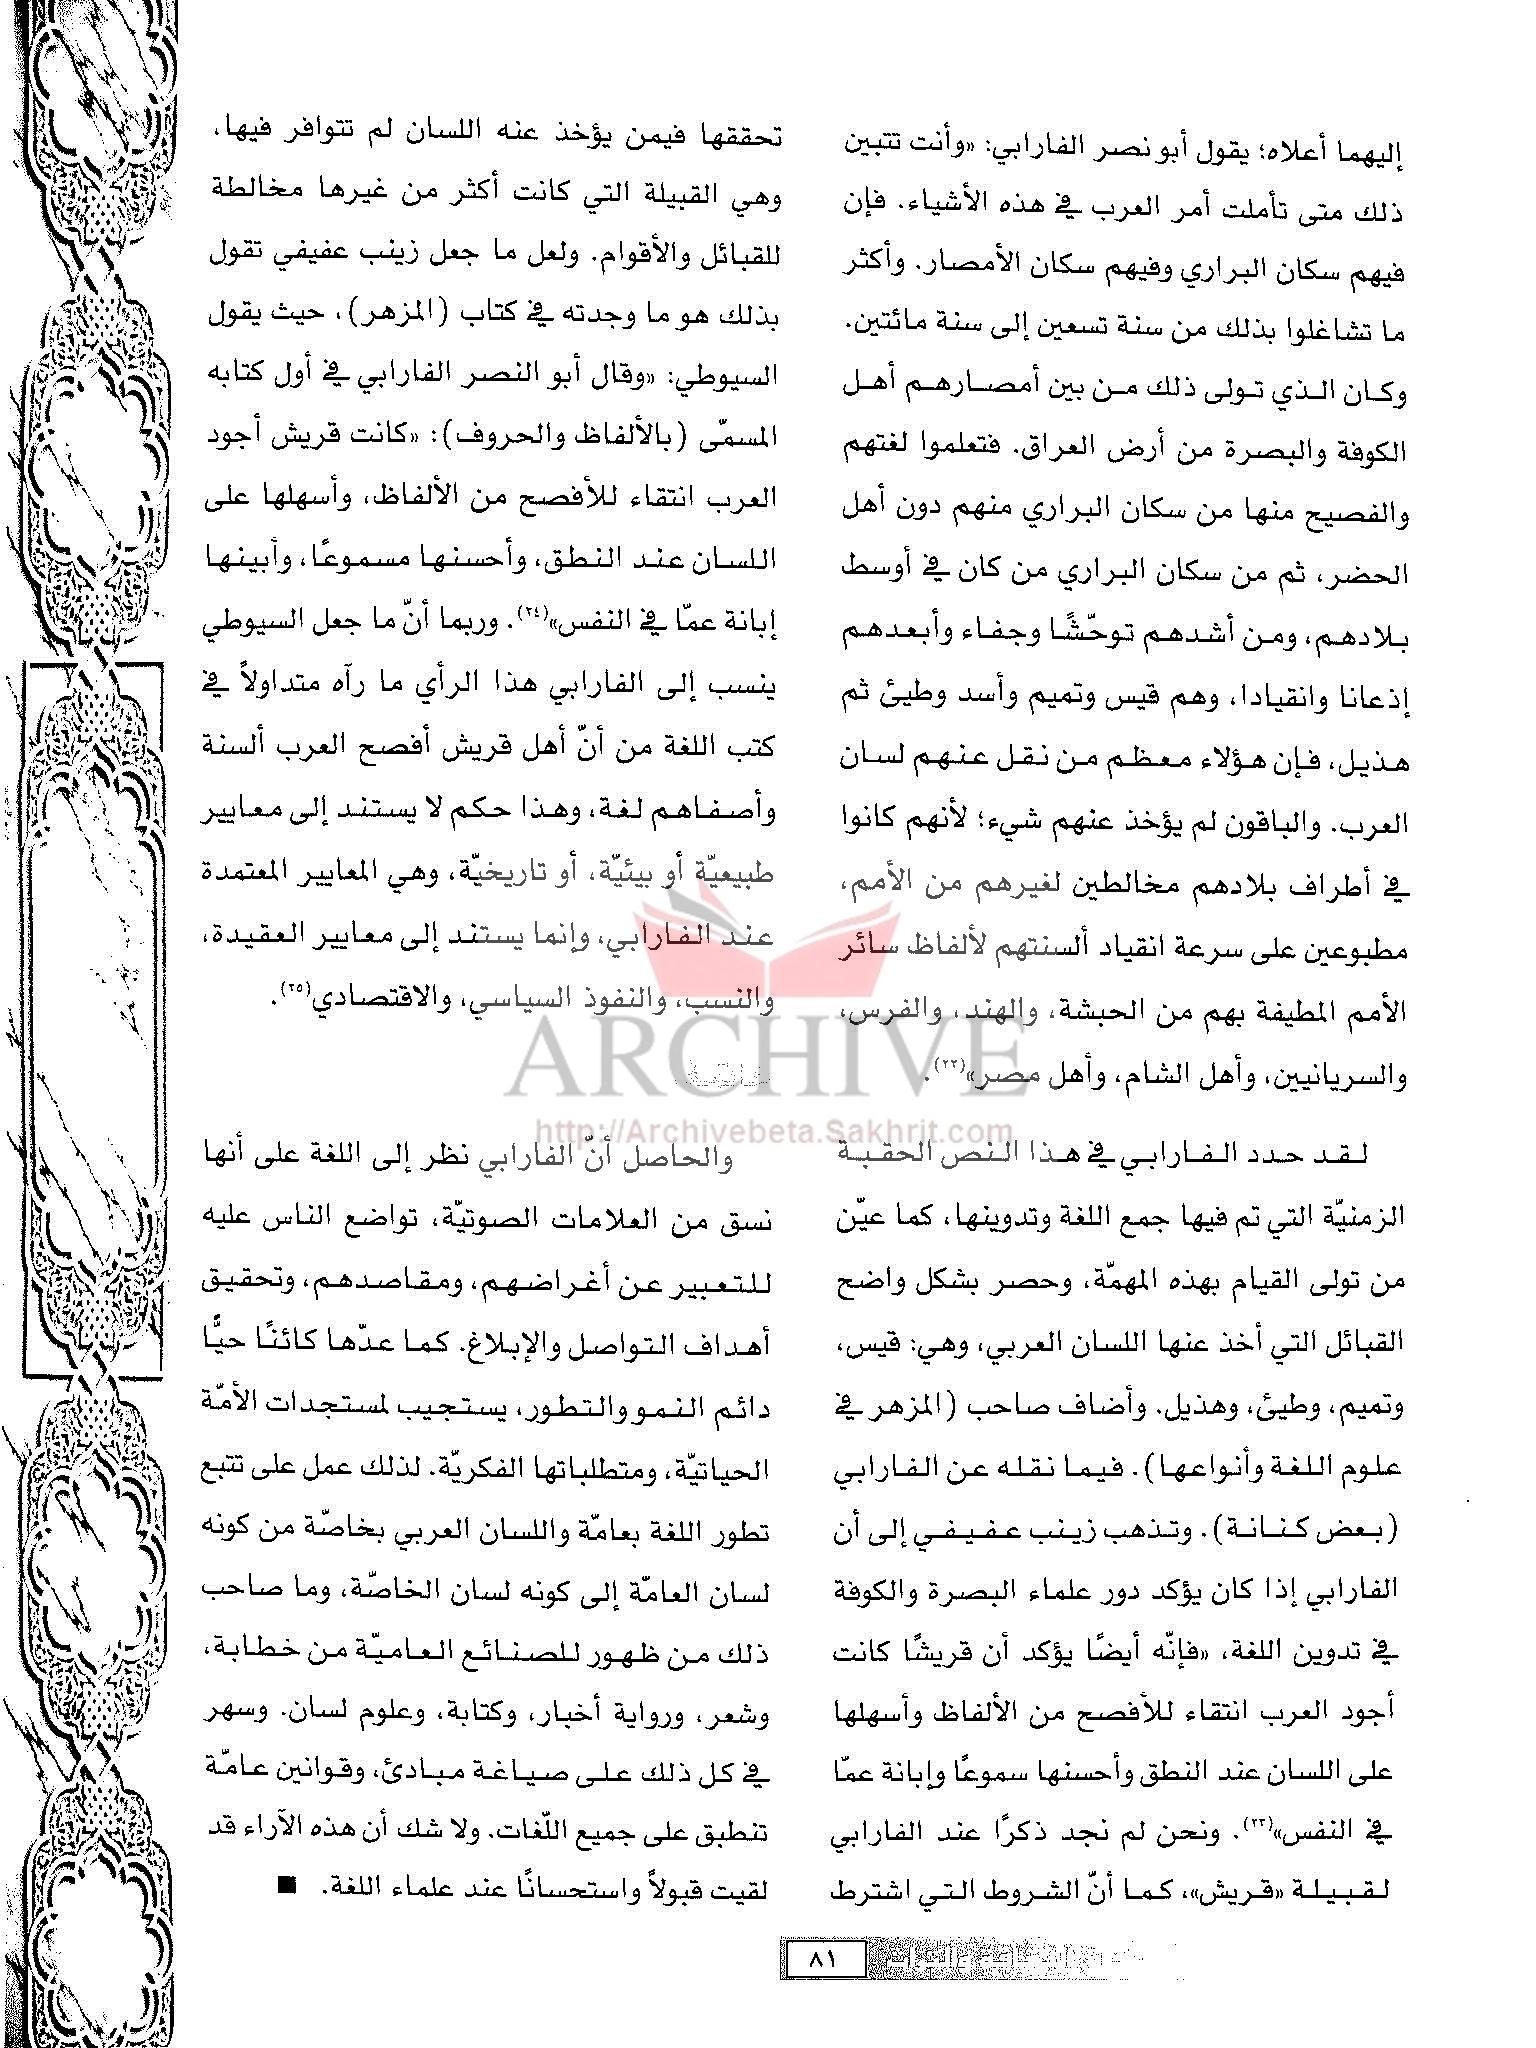 إليهما أعلاه؛ يقول أبو نصر الفارابي: «وأنت تتبين
ذلك متى تأملت أمر العرب في هذه الأشياء. فإن
فيهم سكان البراري وفيهم سكان الأمصار. وأكثر
ما تشاغلوا بذلك من سنة تسعين إلى سنة مائتين.
وكان الذي تولى ذلك من بين أمصارهم أهل
الكوفة والبصرة من أرض العراق. فتعلموا لغتهم
والفصيح منها من سكان البراري منهم دون أهل
الحضر، ثم من سكان البراري من كان في أوسط
بلادهم، ومن أشدهم توحّشًا وجفاء وأبعدهم
إذعانا وانقيادا، وهم قيس وتميم وأسد وطيئ ثم
هذيل، فإن هؤلاء معظم من نقل عنهم لسان
العرب. والباقون لم يؤخذ عنهم شيء؛ لأنهم كانوا
في أطراف بلادهم مخالطين لغيرهم من الأمم،
مطبوعين على سرعة انقياد ألسنتهم لألفاظ سائر
الأمم المطيفة بهم من الحبشة، والهند، والفرس،
والسريانيين، وأهل الشام، وأهل مصر»(٢٢).
لقد حدد الفارابي في هذا النص الحقبة
الزمنيّة التي تم فيها جمع اللغة وتدوينها، كما عيّن
من تولى القيام بهذه المهمّة، وحصر بشكل واضح
القبائل التي أخذ عنها اللسان العربي، وهي: قيس،
وتميم، وطيئ، وهذيل. وأضاف صاحب (المزهر في
علوم اللغة وأنواعها). فيما نقله عن الفارابي
(بعض كنانة). وتذهب زينب عفيفي إلى أن
الفارابي إذا كان يؤكد دور علماء البصرة والكوفة
في تدوين اللغة، «فإنّه أيضًا يؤكد أن قريشًا كانت
أجود العرب انتقاء للأفصح من الألفاظ وأسهلها
على اللسان عند النطق وأحسنها سموعًا وإبانة عمّا
في النفس»(٢٣). ونحن لم نجد ذكرًا عند الفارابي
لقبيلة «قريش»، كما أنّ الشروط التي اشترط
تحققها فيمن يؤخذ عنه اللسان لم تتوافر فيها،
وهي القبيلة التي كانت أكثر من غيرها مخالطة
للقبائل والأقوام. ولعل ما جعل زينب عفيفي تقول
بذلك هو ما وجدته في كتاب (المزهر)، حيث يقول
السيوطي: «وقال أبو النصر الفارابي في أول كتابه
المسمّى (بالألفاظ والحروف): «كانت قريش أجود
العرب انتقاء للأفصح من الألفاظ، وأسهلها على
اللسان عند النطق، وأحسنها مسموعًا، وأبينها
إبانة عمّا في النفس»(٢٤). وربما أنّ ما جعل السيوطي
ينسب إلى الفارابي هذا الرأي ما رآه متداولاً في
كتب اللغة من أنّ أهل قريش أفصح العرب ألسنة
وأصفاهم لغة، وهذا حكم لا يستند إلى معايير
طبيعيّة أو بيئيّة، أو تاريخيّة، وهي المعايير المعتمدة
عند الفارابي، وإنما يستند إلى معايير العقيدة،
والنسب، والنفوذ السياسي، والاقتصادي(٢٥).
والحاصل أنّ الفارابي نظر إلى اللغة على أنها
نسق من العلامات الصوتيّة، تواضع الناس عليه
للتعبير عن أغراضهم، ومقاصدهم، وتحقيق
أهداف التواصل والإبلاغ. كما عدّها كائنًا حيًّا
دائم النمو والتطور، يستجيب لمستجدات الأمّة
الحياتيّة، ومتطلباتها الفكريّة. لذلك عمل على تتبع
تطور اللغة بعامّة واللسان العربي بخاصّة من كونه
لسان العامّة إلى كونه لسان الخاصّة، وما صاحب
ذلك من ظهور للصنائع العاميّة من خطابة،
وشعر، ورواية أخبار، وكتابة، وعلوم لسان. وسهر
في كل ذلك على صياغة مبادئ، وقوانين عامّة
تنطبق على جميع اللّغات. ولا شك أن هذه الآراء قد
لقيت قبولاً واستحسانًا عند علماء اللغة. ■
ARCHIVE
http://Archivebeta.Sakhrit.com
٨١